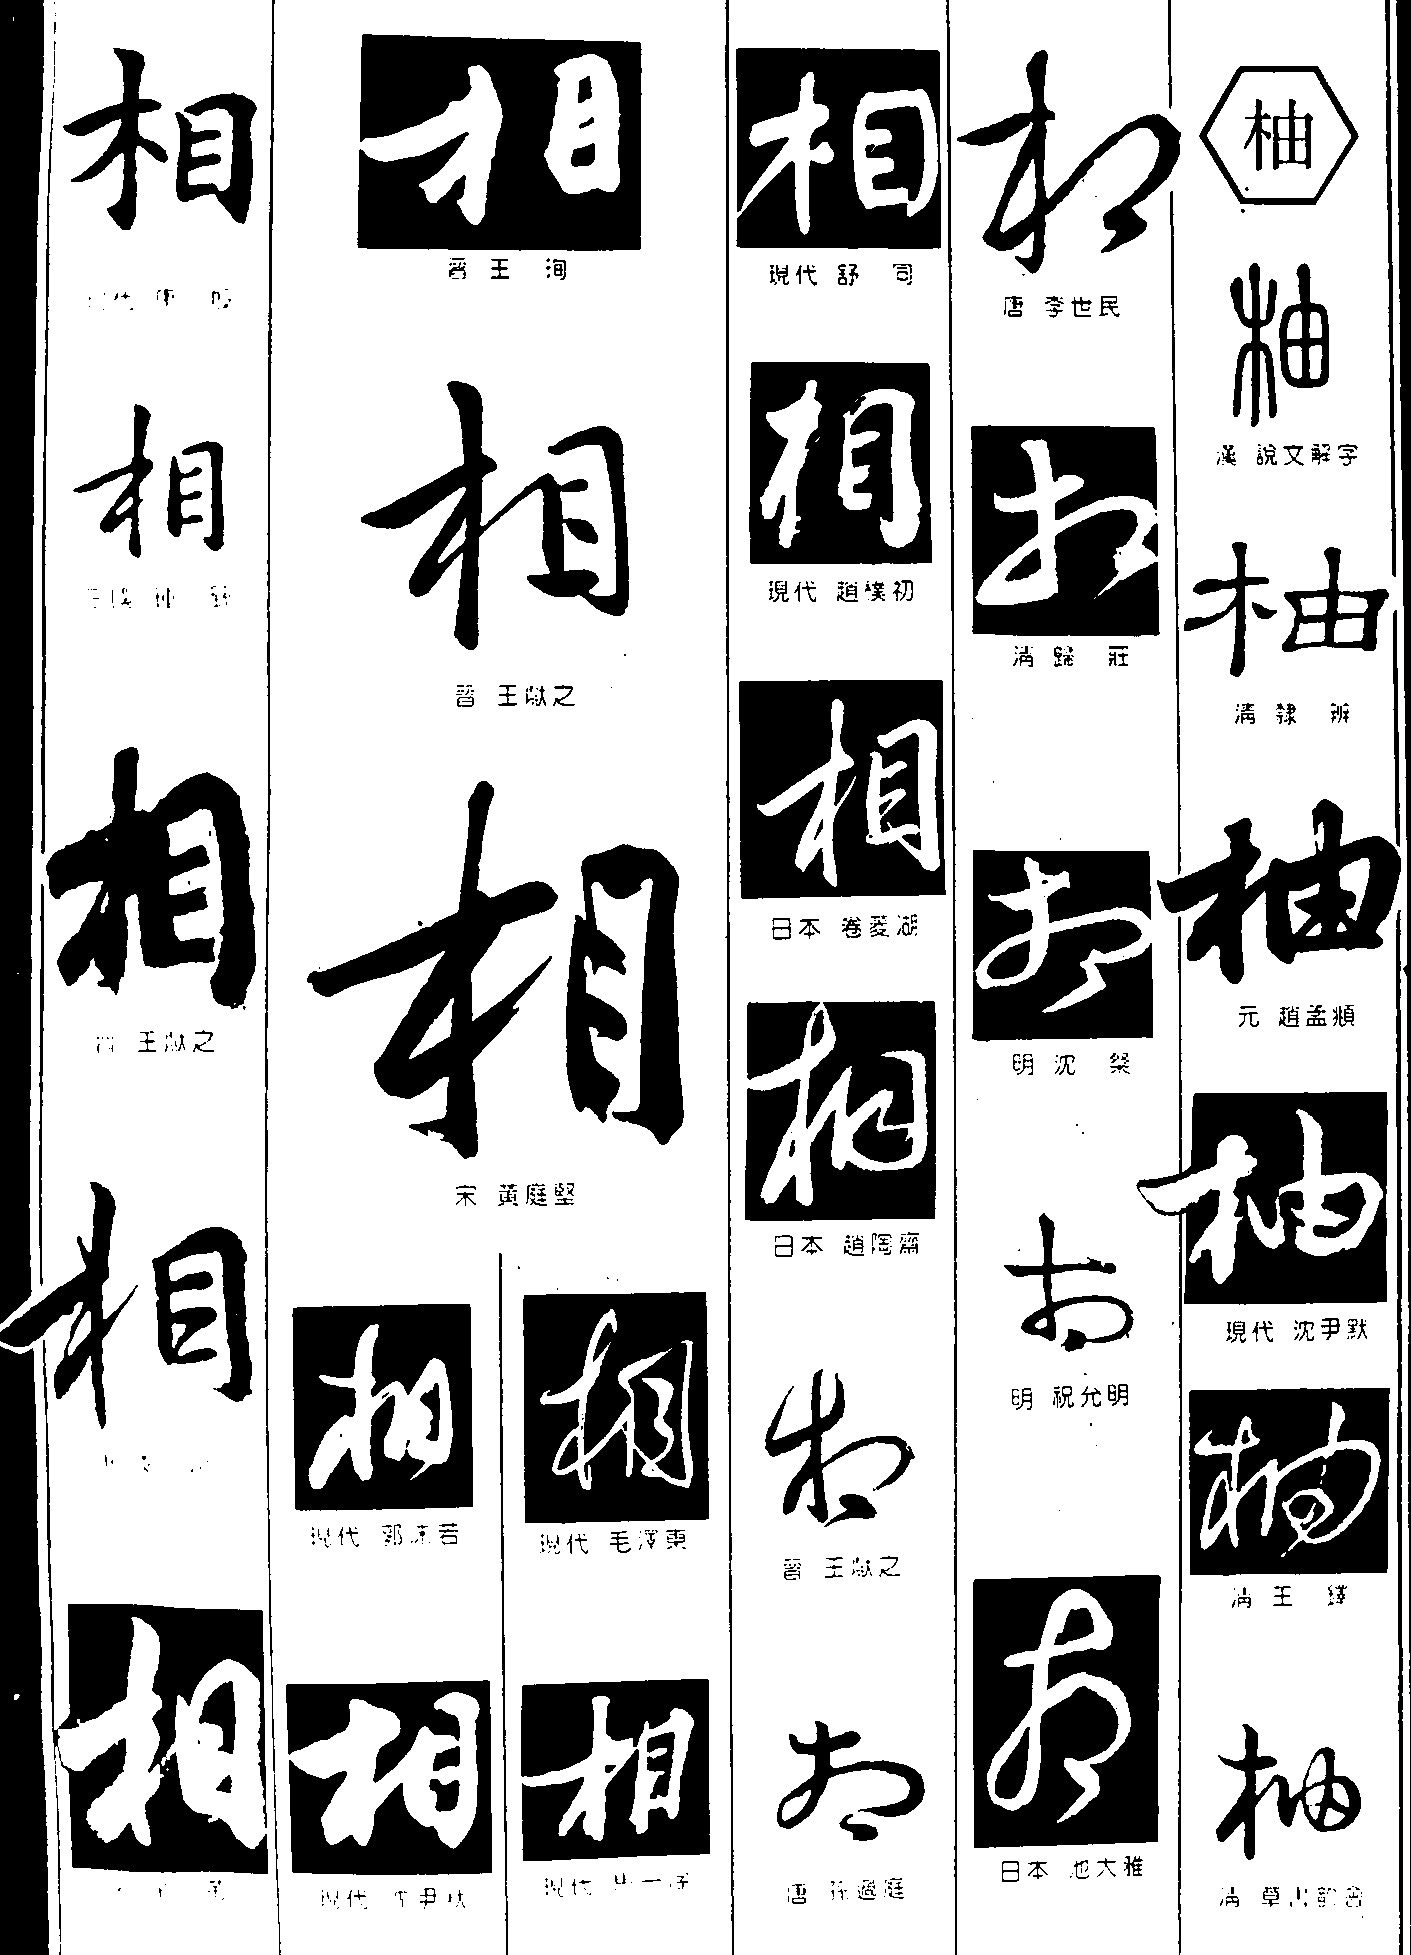 柚
柚
漢 說文解字
柚
清 隸 辨
柚
元 趙孟頫
柚
現代 沈尹默
柚
清 王 鐸
柚
清 草書韵會
相
唐 李世民
相
清 歸 莊
相
明 沈 粲
相
明 祝允明
相
日本 池大雅
相
現代 舒 同
相
現代 趙樸初
相
日本 卷菱湖
相
日本 趙陶齋
相
晉 王獻之
相
唐 孫過庭
相
晉 王 洵
相
晉 王獻之
相
宋 黃庭堅
相
現代 毛澤東
相
現代
相
現代 郭沫若
相
現代 沈尹默
相
相
相
晉 王獻之
相
相